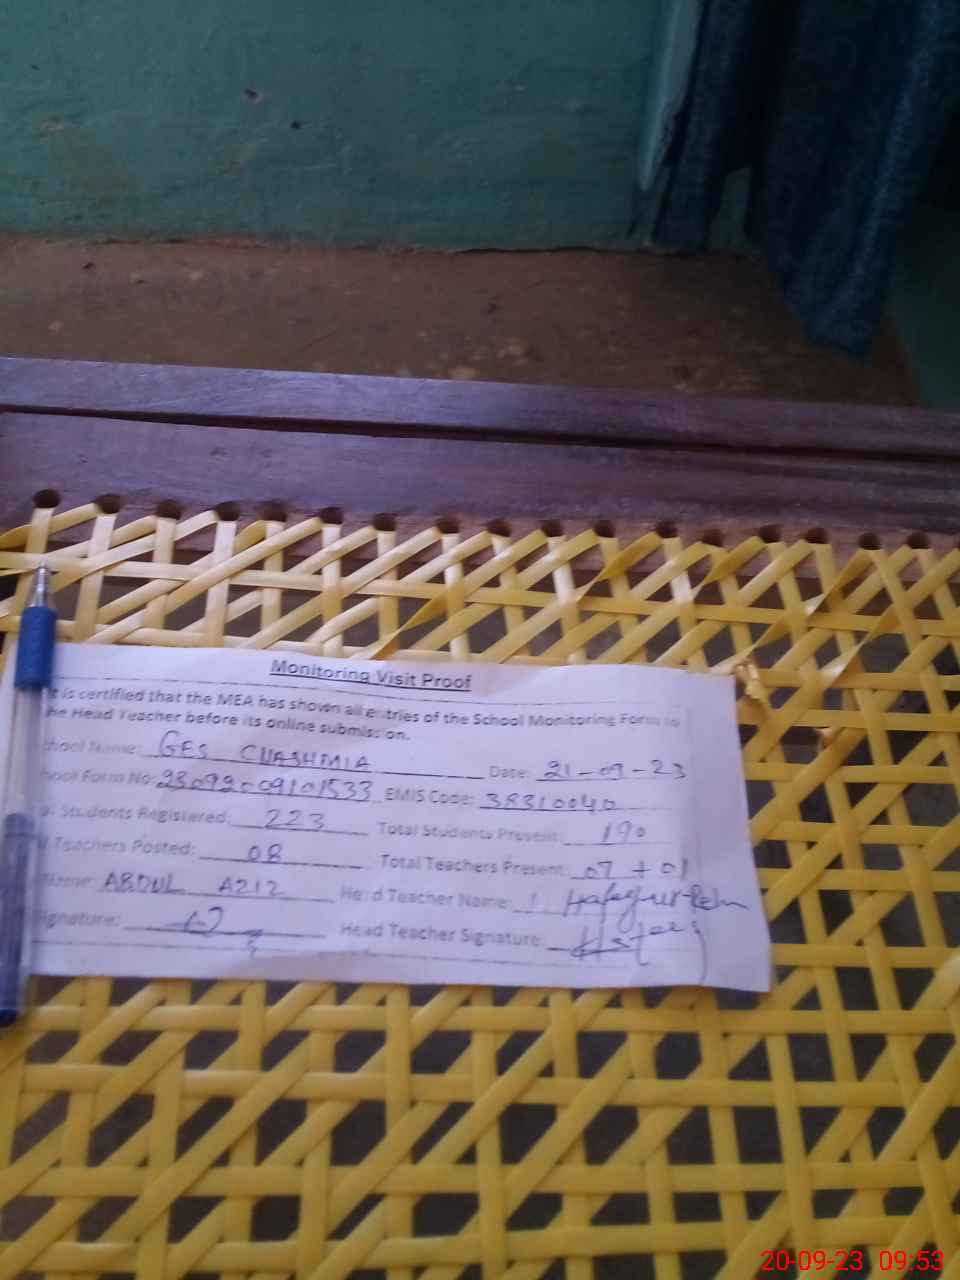 Monitoring Visit Proof
It is certified that the MEA has shown all entries of the School Monitoring Form to
the Head Teacher before its online submission.
chool Name: GES CHASHMIA Date: 21-09-23
hool Form No: 23092009101533 EMIS Code: 38310040
o. Students Registered: 223 Total Students Present: 190
Teachers Posted: 08 Total Teachers Present: 07 + 01
Name: ABDUL AZIZ Head Teacher Name:
Signature: Head Teacher Signature:
20-09-23 09:53